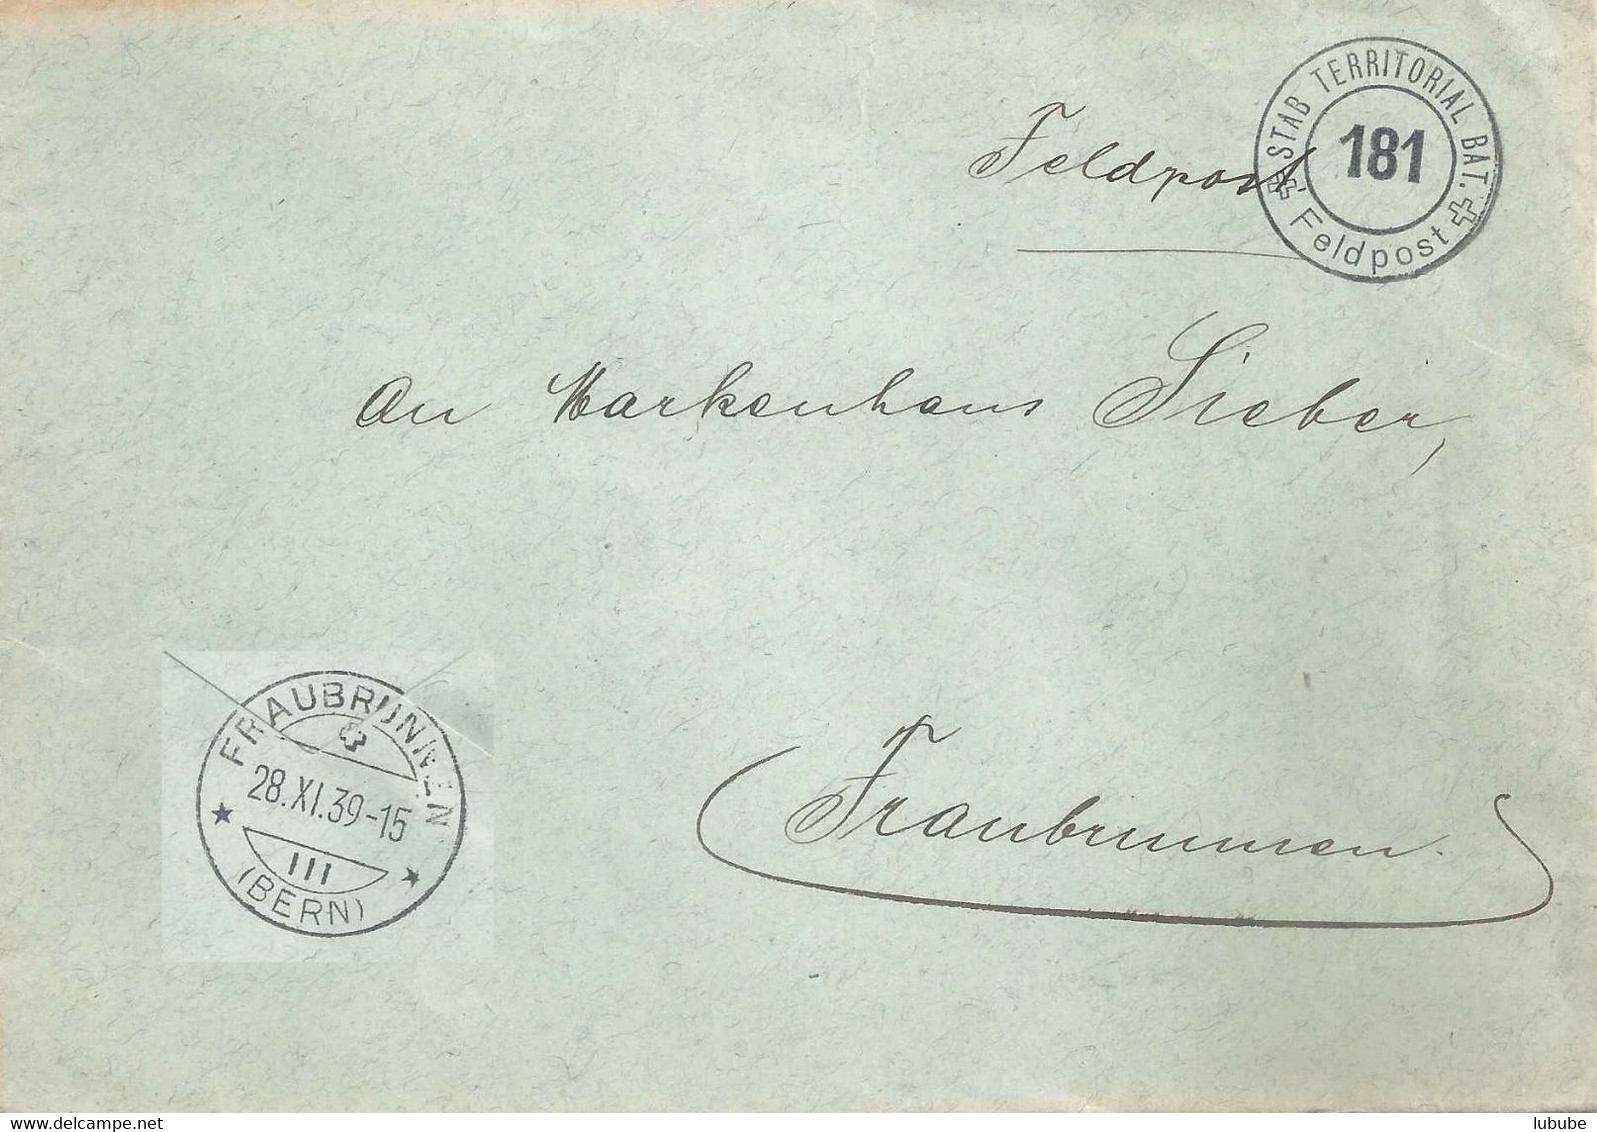 STAB TERRITORIAL BAT.
181
Feldpost
Feldpost
An Markenhaus Sieber,
Fraubrunnen.
FRAUBRUNNEN
28.XI.39-15
III
(BERN)
www.delcampe.net
lubube